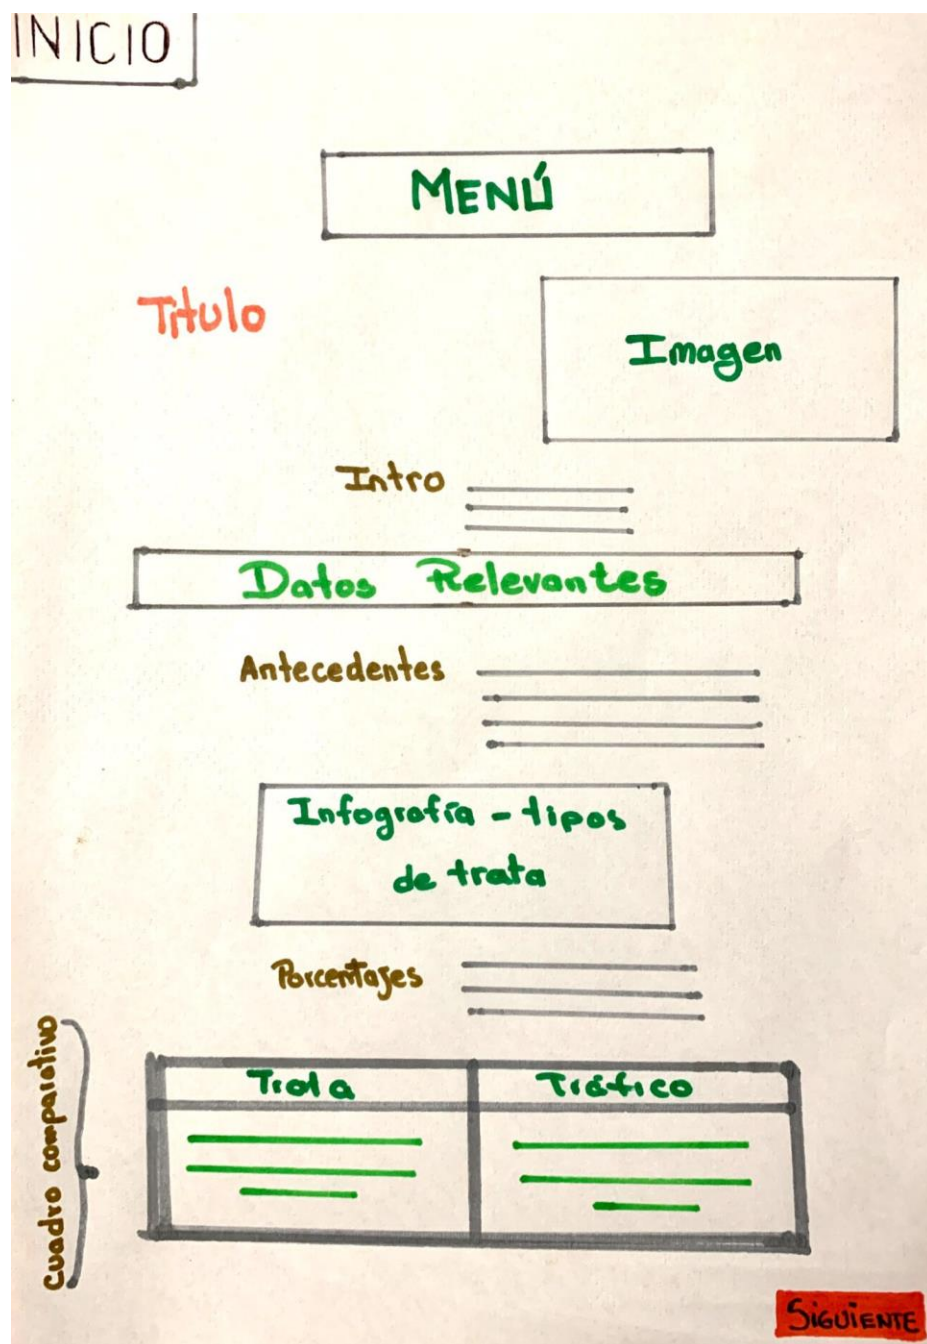 INICIO
MENÚ
Título
Imagen
Intro
Datos Relevantes
Antecedentes
Infografía - tipos
de trata
Porcentajes
cuadro comparativo
Trata
Tráfico
SIGUIENTE